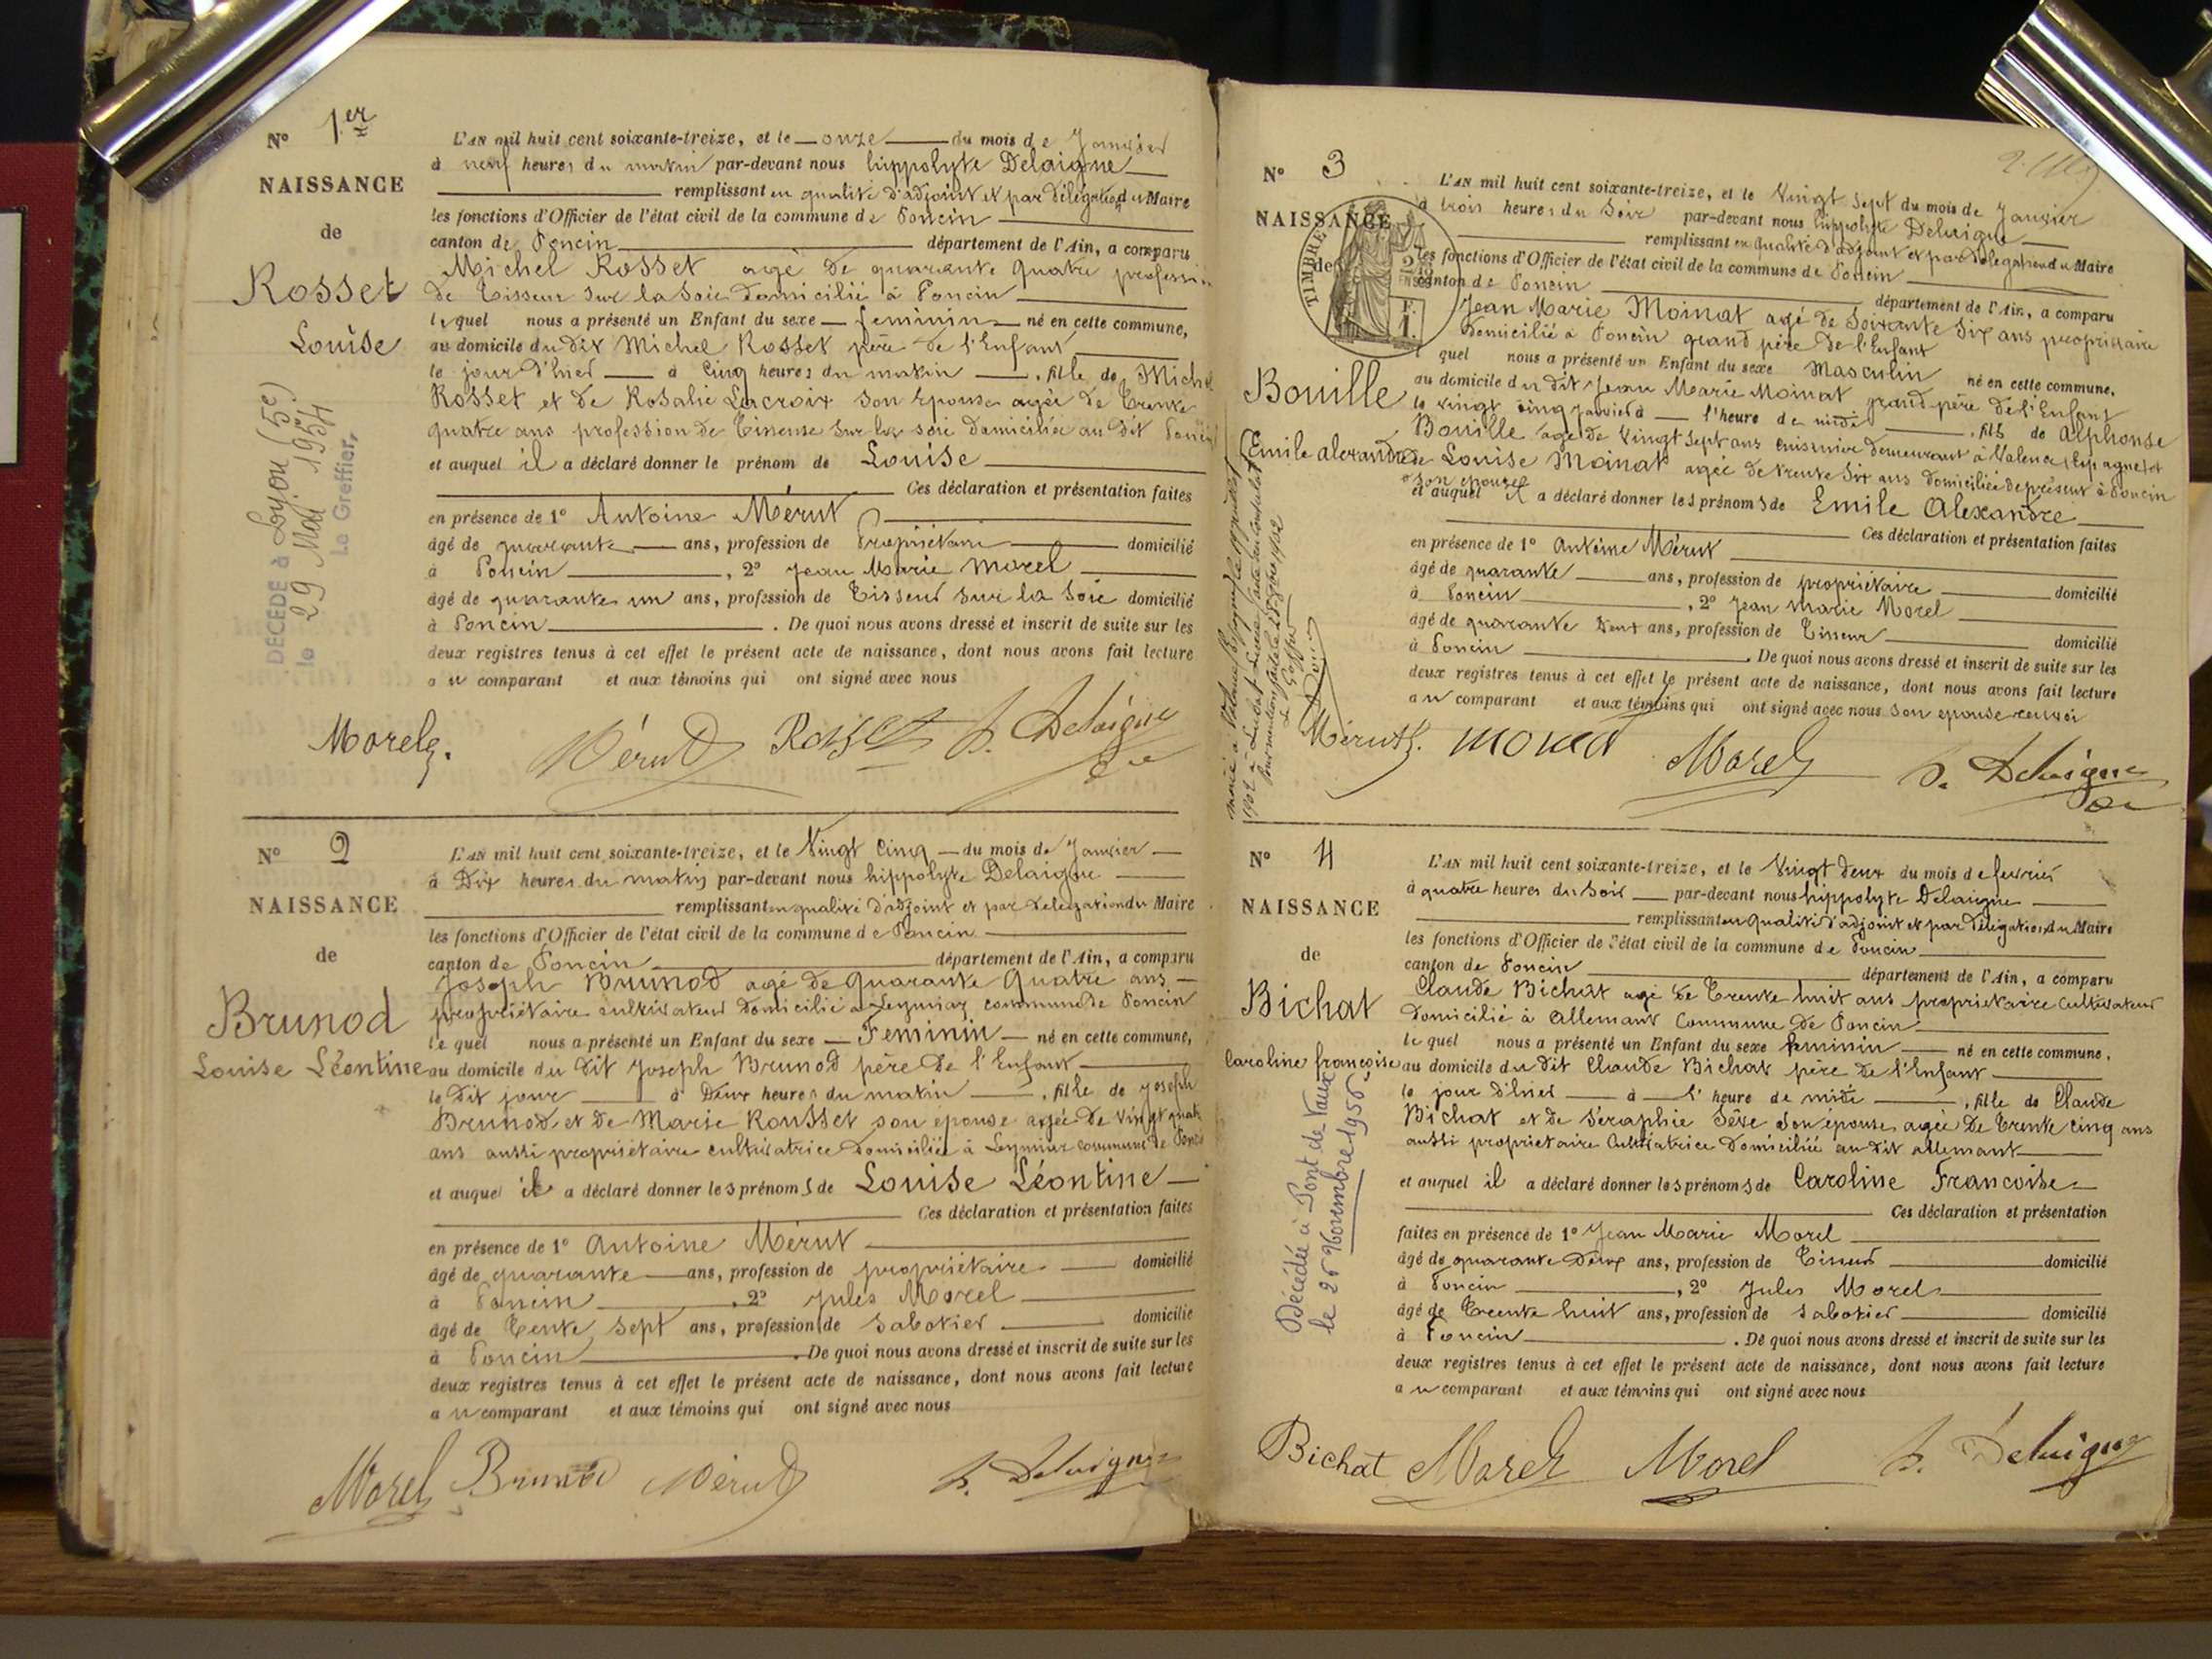 N° 1er
NAISSANCE
de
Rosset
Louise
DÉCÉDÉ à Lyon (5e)
le 29 Mai 1954
Le Greffier,
L'AN mil huit cent soixante-treize, et le onze du mois de Janvier
à neuf heures du matin par-devant nous hippolyte Delaigue
remplissant en qualité d'adjoint et par délégation du Maire
les fonctions d'Officier de l'état civil de la commune de Poncin
canton de Poncin département de l'Ain, a comparu
Michel Rosset agé de quarante quatre profession
de Tisseur sur la soie domicilié à Poncin
lequel nous a présenté un Enfant du sexe feminin né en cette commune,
au domicile du dit Michel Rosset père de l'Enfant
le jour d'hier à Cinq heures du matin, fille de Michel
Rosset et de Rosalie Lacroix son épouse agée de Trente
quatre ans profession de Tisseuse sur la soie domiciliée au dit Poncin
et auquel il a déclaré donner le prénom de Louise
Ces déclaration et présentation faites
en présence de 1° Antoine Mérut
âgé de quarante ans, profession de Propriétaire domicilié
à Poncin, 2° Jean Marie Morel
âgé de quarante un ans, profession de Tisseur sur la soie domicilié
à Poncin. De quoi nous avons dressé et inscrit de suite sur les
deux registres tenus à cet effet le présent acte de naissance, dont nous avons fait lecture
au comparant et aux témoins qui ont signé avec nous
Morel Mérut Rosset h. Delaigue
N° 2
NAISSANCE
de
Brunod
Louise Léontine
L'AN mil huit cent soixante-treize, et le Vingt Cinq du mois de Janvier
à Dix heures du matin par-devant nous hippolyte Delaigue
remplissant en qualité d'adjoint et par delegation du Maire
les fonctions d'Officier de l'état civil de la commune de Poncin
canton de Poncin département de l'Ain, a comparu
Joseph Brunod agé de Quarante Quatre ans
propriétaire cultivateur domicilié a Leymiaz commune de Poncin
lequel nous a présenté un Enfant du sexe Feminin né en cette commune,
au domicile du dit Joseph Brunod père de l'Enfant
le dit jour à Deux heures du matin, fille de Joseph
Brunod et de Marie Rousset son épouse agée de Vingt quatre
ans aussi propriétaire cultivatrice domiciliée à Leymiaz commune de Poncin
et auquel il a déclaré donner les prénoms de Louise Léontine
Ces déclaration et présentation faites
en présence de 1° Antoine Mérut
âgé de quarante ans, profession de propriétaire domicilié
à Poncin, 2° Jules Morel
âgé de Tente sept ans, profession de sabotier domicilié
à Poncin. De quoi nous avons dressé et inscrit de suite sur les
deux registres tenus à cet effet le présent acte de naissance, dont nous avons fait lecture
au comparant et aux témoins qui ont signé avec nous
Morel Brunod Mérut h. Delaigue
N° 3
NAISSANCE
de
TIMBRE
Bouille
Emile alexandre
L'AN mil huit cent soixante-treize, et le Vingt sept du mois de Janvier
à trois heures du Soir par-devant nous hippolyte Delaigue
remplissant en qualité d'adjoint et par délégation du Maire
les fonctions d'Officier de l'état civil de la commune de Poncin
canton de Poncin département de l'Ain, a comparu
Jean Marie Moinat agé de soixante six ans propriétaire
domicilié à Poncin grand père de l'Enfant
lequel nous a présenté un Enfant du sexe Masculin né en cette commune,
au domicile du dit Jean Marie Moinat grand-père de l'Enfant
le vingt cinq janvier à l'heure de midi, fils de Alphonse
Bouille agé de Vingt sept ans cuisinier demeurant à Valence (Espagne) et
de Louise Moinat agée de trente six ans domiciliée de présent à Poncin
son epouse
et auquel il a déclaré donner les prénoms de Emile Alexandre
Ces déclaration et présentation faites
en présence de 1° Antoine Mérut
âgé de quarante ans, profession de propriétaire domicilié
à Poncin, 2° Jean Marie Morel
âgé de quarante deux ans, profession de Tisseur domicilié
à Poncin. De quoi nous avons dressé et inscrit de suite sur les
deux registres tenus à cet effet le présent acte de naissance, dont nous avons fait lecture
au comparant et aux témoins qui ont signé avec nous son epouse renvoi
Mérut Morel h. Delaigue
N° 4
NAISSANCE
de
Bichat
Caroline françoise
Décédée à Pont de Vaux
le 25 Novembre 1956
L'AN mil huit cent soixante-treize, et le Vingt deux du mois de fevrier
à quatre heures du Soir par-devant nous hippolyte Delaigue
remplissant en qualité d'adjoint et par délégation du Maire
les fonctions d'Officier de l'état civil de la commune de Poncin
canton de Poncin département de l'Ain, a comparu
Claude Bichat agé de Trente huit ans propriétaire Cultivateur
domicilié à Allemant Commune de Poncin
lequel nous a présenté un Enfant du sexe feminin né en cette commune,
au domicile du dit Claude Bichat père de l'Enfant
le jour d'hier à l'heure de midi, fille de Claude
Bichat et de Séraphie Sève son épouse agée de Trente cinq ans
aussi propriétaire Cultivatrice domiciliée au dit allemant
et auquel il a déclaré donner les prénoms de Caroline Francoise
Ces déclaration et présentation
faites en présence de 1° Jean Marie Morel
âgé de quarante deux ans, profession de Tisseur domicilié
à Poncin, 2° Jules Morel
âgé de Trente huit ans, profession de sabotier domicilié
à Poncin. De quoi nous avons dressé et inscrit de suite sur les
deux registres tenus à cet effet le présent acte de naissance, dont nous avons fait lecture
au comparant et aux témoins qui ont signé avec nous
Bichat Morel Morel h. Delaigue